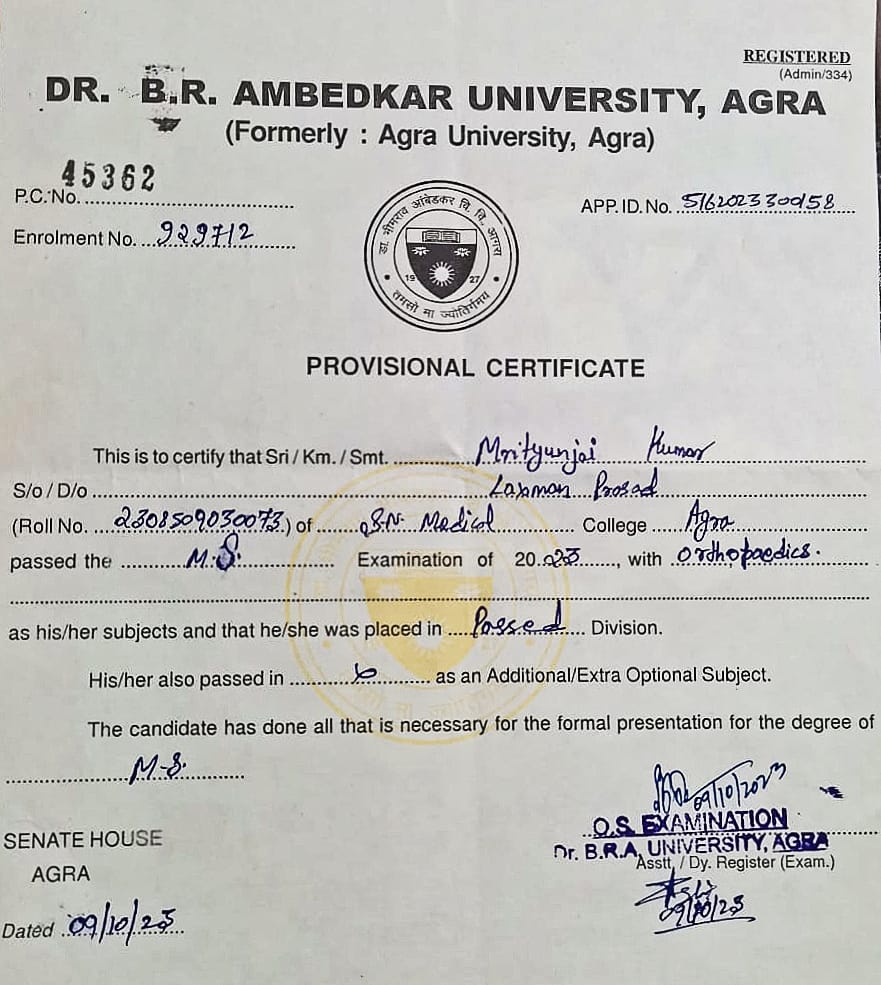 REGISTERED
(Admin/334)
DR. B.R. AMBEDKAR UNIVERSITY, AGRA
(Formerly : Agra University, Agra)
45362
P.C. No. ..............................
APP. ID. No. 516202330058
Enrolment No. ...929712
डा. भीमराव आंबेडकर वि. वि., आगरा
19 27
तमसो मा ज्योतिर्गमय
PROVISIONAL CERTIFICATE
This is to certify that Sri / Km. / Smt. ............ Mrityunjai Kumar
S/o / D/o ............ Laxman Prasad
(Roll No. ...2308509030073.) of ...... S.N. Medical ............ College .... Agra
passed the ............ M.S. ............ Examination of 20..023......, with Orthopaedics.
as his/her subjects and that he/she was placed in .... Passed .... Division.
His/her also passed in .................... as an Additional/Extra Optional Subject.
The candidate has done all that is necessary for the formal presentation for the degree of
.................. M.S. ............
09/10/2023
O.S. EXAMINATION
SENATE HOUSE
Dr. B.R.A. UNIVERSITY, AGRA
Asstt. / Dy. Register (Exam.)
AGRA
09/10/23
Dated ..09/10/23...